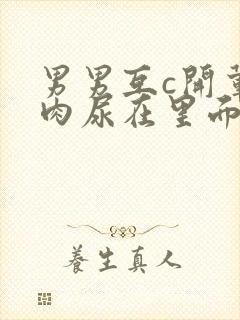 男男互c開葷
肉尿在里面
養生真人